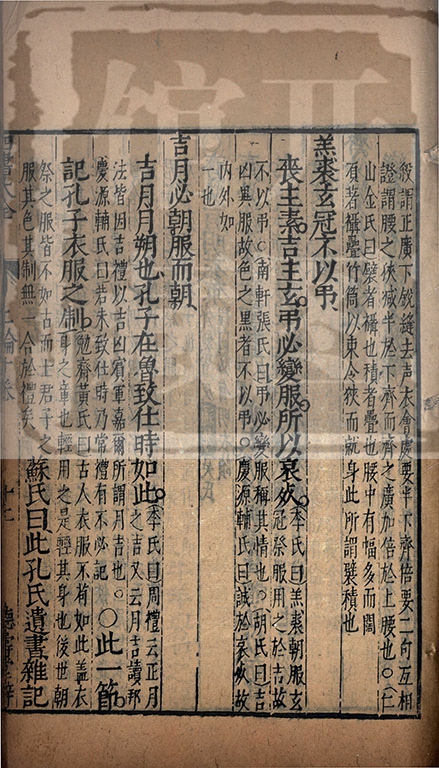 殺謂正廣下殺縫去声衣會處要半下齊倍要二句互相
證謂腰之狹減半於下齊而齊之廣加倍於上腰也○仁
山金氏曰襞者襵也積者疊也腰中有幅多而闊
湏著襵疊竹筒以束令狹而就身此所謂襞積也
羔裘玄冠不以弔
喪主素吉主玄弔必變服所以哀死李氏曰羔裘朝服玄
冠祭服用之於吉故
不以弔○南軒張氏曰弔必變服稱其情也○胡氏曰吉
凶異服故色之黑者不以弔○慶源輔氏曰誠於哀死故
内外如
一也
吉月必朝服而朝
吉月月朔也孔子在魯致仕時如此李氏曰周禮云正月
之吉又云月吉讀邦
法皆因吉禮以吉凶賓軍嘉爾所謂月吉也○
慶源輔氏曰若未致仕時乃常禮有不必記
○此一節
記孔子衣服之制勉齋黃氏曰古人衣服不苟如此盖衣
身之章也輕用之是輕其身也後世朝
祭之服皆不如古而士君子之
服其色其制無一合於禮矣
蘇氏曰此孔氏遺書雜記